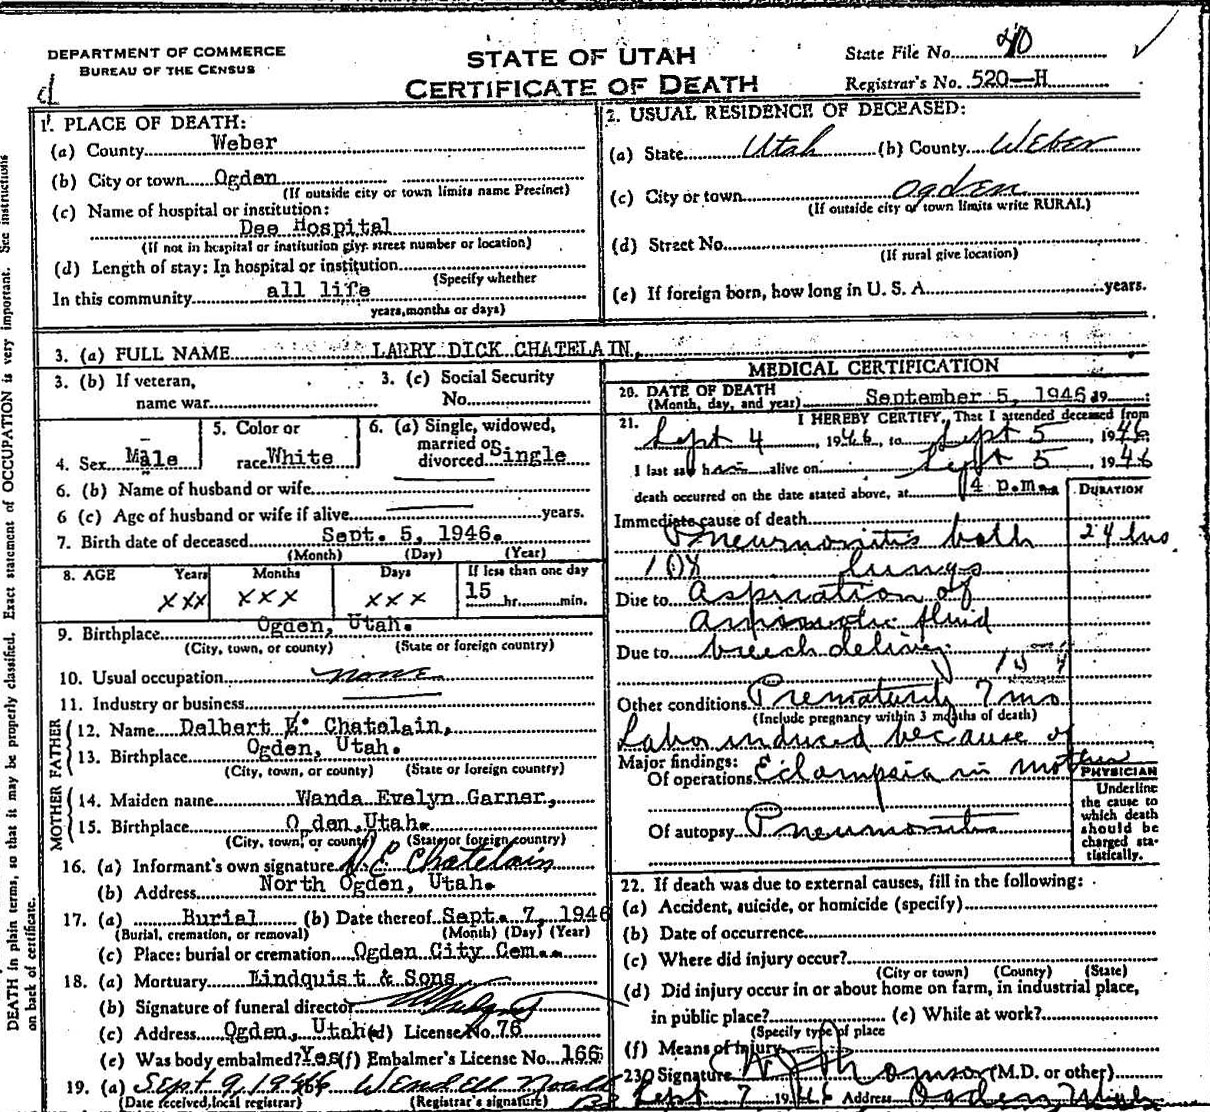 DEPARTMENT OF COMMERCE
BUREAU OF THE CENSUS
STATE OF UTAH
CERTIFICATE OF DEATH
State File No.
Registrar's No. 520-H
1. PLACE OF DEATH:
(a) County Weber
(b) City or town Ogden
(If outside city or town limits name Precinct)
(c) Name of hospital or institution:
Dee Hospital
(If not in hospital or institution give street number or location)
(d) Length of stay: In hospital or institution
(Specify whether
In this community all life
years, months or days)
2. USUAL RESIDENCE OF DECEASED:
(a) State Utah (b) County Weber
(c) City or town Ogden
(If outside city or town limits write RURAL)
(d) Street No.
(If rural give location)
(e) If foreign born, how long in U. S. A. years.
3. (a) FULL NAME LARRY DICK CHATELAIN,
3. (b) If veteran,
name war
3. (c) Social Security
No.
4. Sex Male
5. Color or
race White
6. (a) Single, widowed,
married or
divorced Single
6. (b) Name of husband or wife
6 (c) Age of husband or wife if alive years.
7. Birth date of deceased Sept. 5, 1946.
(Month) (Day) (Year)
8. AGE Years Months Days If less than one day
xxx xxx xxx 15 hr. min.
9. Birthplace Ogden, Utah.
(City, town, or county) (State or foreign country)
10. Usual occupation none
11. Industry or business
FATHER
12. Name Delbert E. Chatelain,
13. Birthplace Ogden, Utah.
(City, town, or county) (State or foreign country)
MOTHER
14. Maiden name Wanda Evelyn Garner,
15. Birthplace O den, Utah.
(City, town, or county) (State or foreign country)
16. (a) Informant's own signature Chatelain
(b) Address North Ogden, Utah.
17. (a) Burial (b) Date thereof Sept. 7, 1946
(Burial, cremation, or removal) (Month) (Day) (Year)
(c) Place: burial or cremation Ogden City Cem.
18. (a) Mortuary Lindquist & Sons
(b) Signature of funeral director
(c) Address Ogden, Utah (d) License No. 76
(e) Was body embalmed? Yes (f) Embalmer's License No. 166
19. (a) Sept 9, 1946 Wendell
(Date received local registrar) (Registrar's signature)
MEDICAL CERTIFICATION
20. DATE OF DEATH
(Month, day, and year) September 5, 1946. 19
21. I HEREBY CERTIFY, That I attended deceased from
Sept 4, 1946, to Sept 5, 1946
I last saw him alive on Sept 5, 1946
death occurred on the date stated above, at 4 p.m.
DURATION
Immediate cause of death
Pneumonitis both 24 hrs.
lungs
Due to aspiration of
fluid
Due to breech delivery
Other conditions Prematurity 7 mo
(Include pregnancy within 3 months of death)
Labor induced because of
Major findings:
Of operations Eclampsia in mother
Of autopsy Pneumonitis
PHYSICIAN
Underline
the cause to
which death
should be
charged sta-
tistically.
22. If death was due to external causes, fill in the following:
(a) Accident, suicide, or homicide (specify)
(b) Date of occurrence
(c) Where did injury occur?
(City or town) (County) (State)
(d) Did injury occur in or about home on farm, in industrial place,
in public place? (e) While at work?
(Specify type of place
(f) Means of Injury
230 Signature (M.D. or other)
Sept 7 1946 Address Ogden, Utah
DEATH in plain terms, so that it may be properly classified. Exact statement of OCCUPATION is very important. See instructions
on back of certificate.